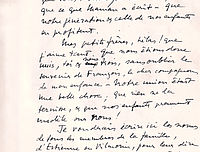 que ce que Maman a écrit - que
notre génération et celle de nos enfants
en profitent.
Mes petits frères, Lilus ! que
j'aime tant, que nous étions donc
unis, toi et nous trois, sans oublier le
souvenir de François, le cher compagnon
de mon enfance - Notre union était
une belle chose, que rien ne la
ternisse, et que nos enfants prennent
modèle sur nous !
Je voudrais écrire ici les noms
de tous les membres de la famille,
d'Estrenne en Vilmorin, pour leur dire